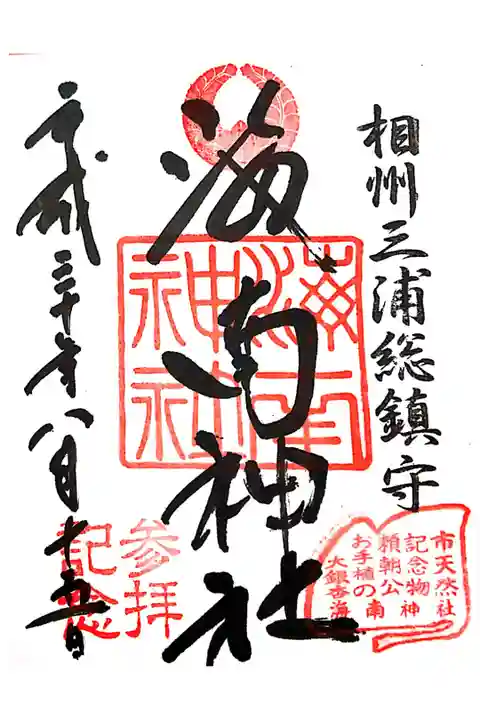 相州三浦総鎮守
海南神社
平成三十年八月十五日
海南
神社
参拝
記念
市天然社
記念物神
頼朝公南
お手植の
大銀杏海